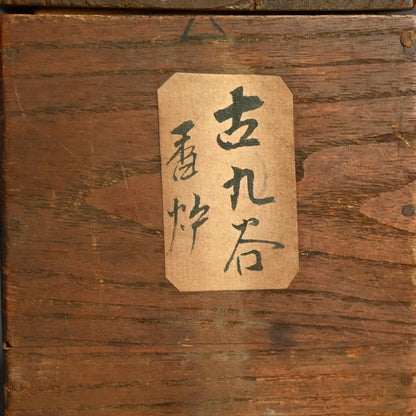 古九谷
香炉